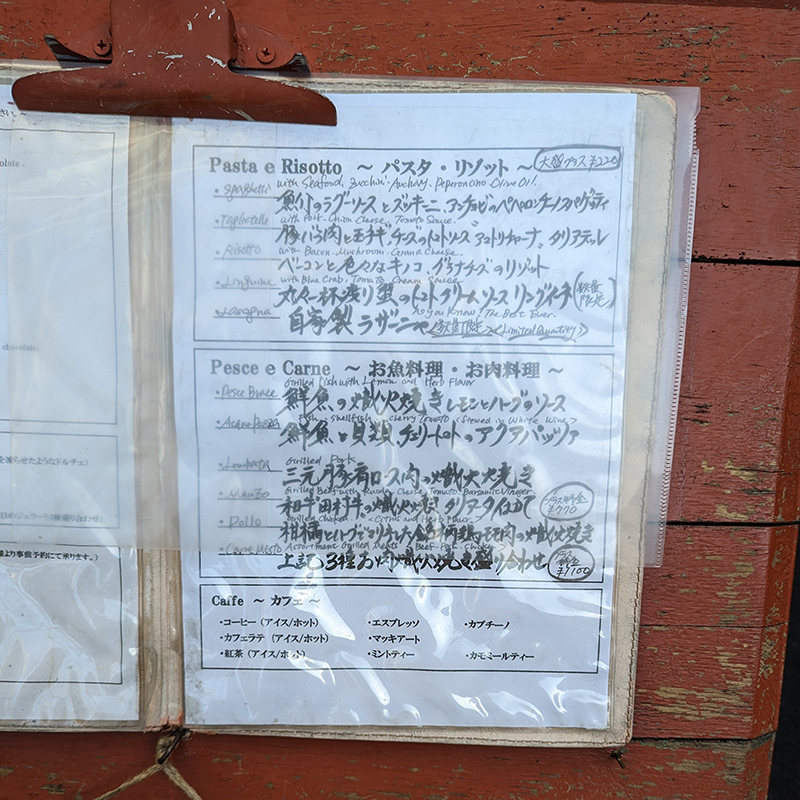 さい。～
olate.
chocolate.
を凍らせたようなドルチェ)
日のジェラート3種盛り合わせ)
様より事前予約にて承ります。)
Pasta e Risotto ～ パスタ・リゾット ～ 大盛プラス¥220
with Seafood, Zucchini, Anchovy, Peperoncino Olive Oil.
・Spaghetti 魚介のラグーソースとズッキーニ、アンチョビのペペロンチーノスパゲッティ
with Pork, Onion Cheese, Tomato Sauce.
・Tagliatelle 豚バラ肉と玉ネギ、チーズのトマトソース"アマトリチャーナ"タリアテッレ
with Bacon, Mushroom, Grana Cheese.
・Risotto ベーコンと色々なキノコ、グラナチーズのリゾット
with Blue Crab, Tomato Cream Sauce
・Linguine 渡り蟹のトマトクリームソース リングイーネ (数量限定)
As you Know! The Best Ever.
・Lasagna 自家製ラザーニャ 数量限定 <Limited Quantity>
Pesce e Carne ～ お魚料理・お肉料理 ～
Grilled Fish with Lemon and Herb Flavor
・Pesce Brace 鮮魚の熾火焼き レモンとハーブのソース
Fish, shellfish, cherry Tomato <Stewed in White Wine>
・Acqua Pazza 鮮魚と貝類 チェリートマトのアクアパッツァ
Grilled Pork
・Lombata 三元豚肩ロース肉の熾火焼き
Grilled Beef with Rucola, Cheese, Tomato, Balsamic Vinegar
・Manzo 和牛田村牛の熾火焼き タリアータ仕立て プラス料金 ¥770
Grilled Chicken <Citrus and Herb Flavor>
・Pollo 柑橘とハーブでマリネした モモ肉の熾火焼き
Assortment Grilled Meats <Beef, Pork, Chicken>
・Carne Misto 上記3種お肉の熾火焼き盛り合わせ プラス料金 ¥1100
Caffe ～ カフェ ～
・コーヒー (アイス/ホット) ・エスプレッソ ・カプチーノ
・カフェラテ (アイス/ホット) ・マッキアート
・紅茶 (アイス/ホット) ・ミントティー ・カモミールティー